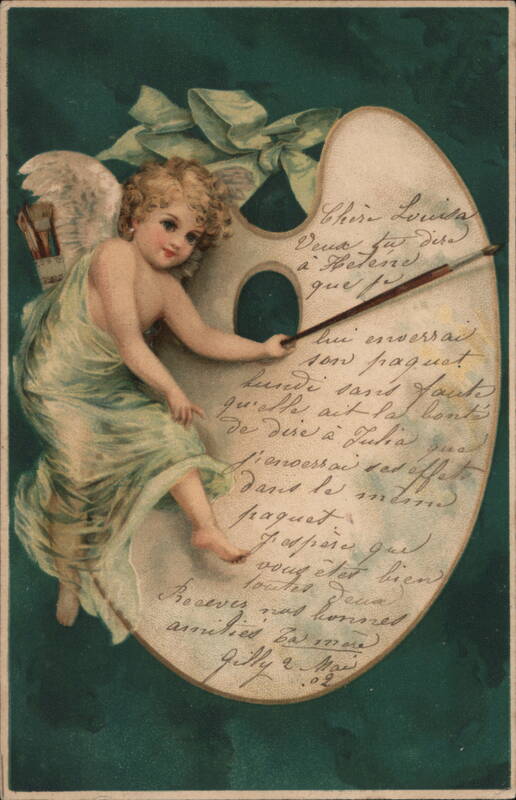 Chère Louisa
Veux tu dire
à Hélène
que je
lui enverrai
son paquet
lundi sans faute
qu'elle ait la bonté
de dire à Julia que
j'enverrai ses effets
dans le même
paquet
J'espère que
vous êtes bien
toutes deux
Recevez nos bonnes
amitiés Ta mère
Gilly 2 Mai
.02